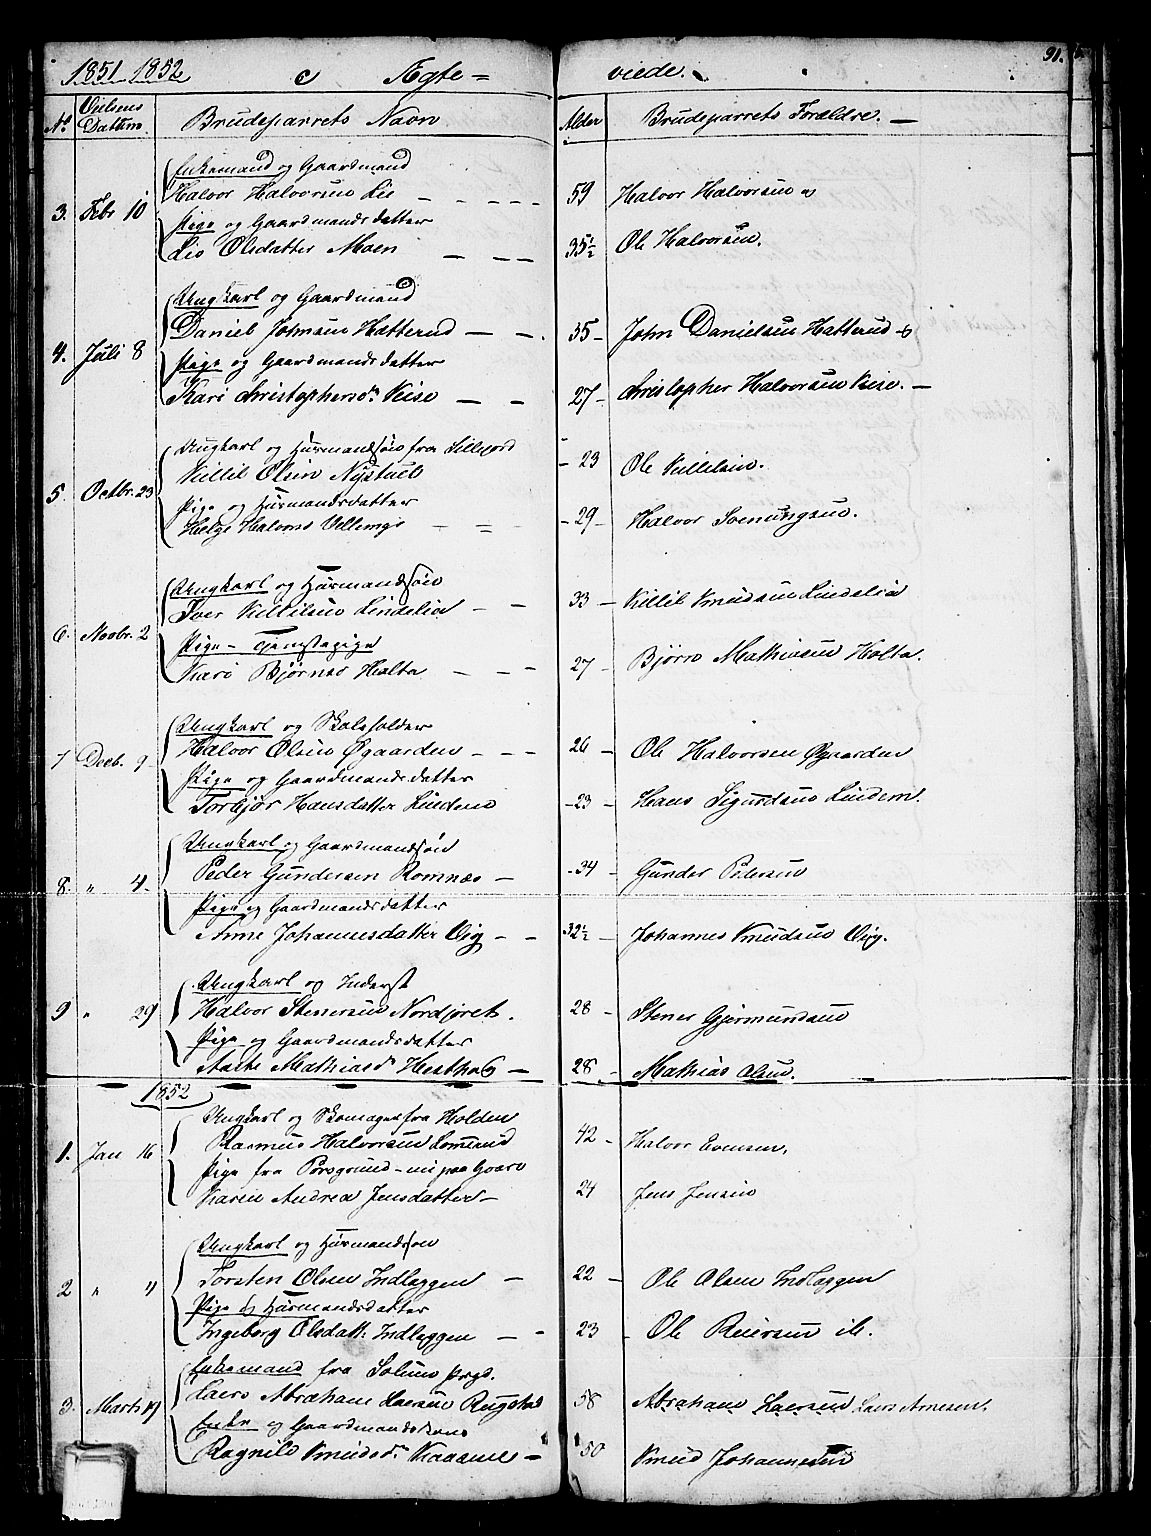 1851 1852 c Ægte= viede. 91.
No Vielsens Datum Brudeparrets Navn Alder Brudeparrets Forældre.
Enkemand og Gaardmand
Halvor Halvorsen Lie 59 Halvor Halvorsen
3. Febr 10
Pige og Gaardmandsdatter
Liv Olsdatter Moen 35½ Ole Halvorsen.
Ungkarl og Gaardmand
Daniel Johnsen Hatterud 35 John Danielsen Hatterud
4. Juli 8
Pige og Gaardmandsdatter
Kari Christophersd. Veise 27 Christopher Halvorsen Veise.
Ungkarl og Huusmandssøn fra Sillejord
Killil Olsen Nystuel 23 Ole Killilsen.
5. Octbr. 23
Pige og Huusmandsdatter
Helge Halvors Vellemge 29 Halvor Svenungsen.
Ungkarl og Huusmandssøn
Iver Killilsen Lindelia 33 Killil Knudsen Lindelia
6. Novbr. 2
Pige – Tjenstepige
Kari Bjørnsd Holta 27 Bjørn Mathiasen Holta.
Ungkarl og Skoleholder
Halvor Olsen Øgaarden 26 Ole Halvorsen Øgaarden
7 Decb. 9
Pige og Gaardmandsdatter
Torbjør Hansdatter Lindem 23 Hans Sigurdsen Lindem.
Ungkarl og Gaardmandssøn
Peder Gundersen Romnæs 34 Gunder Pedersen
8. " 4
Pige og Gaardmandsdatter
Anne Johannesdatter Vig 32½ Johannes Knudsen Vig.
Ungkarl og Inderst
Halvor Stenersen Nordjoret. 28 Stener Gjermundsen
9 " 29
Pige og Gaardmandsdatter
Aaste Mathiasd. Hesthag 28 Mathias Olsen.
1852
Ungkarl og Skomager fra Holden
Rasmus Halvorsen Romsand 42 Halvor Evensen.
1. Jan 16
Pige fra Porsgrund – nu paa Gvarv
Karen Andrea Jensdatter 24 Jens Jensen
Ungkarl og Huusmandssøn
Torsten Olsen Indlæggen 22 Ole Olsen Indlæggen
2 " "
Pige og Huusmandsdatter
Ingeborg Olsdatt. Indlæggen 23 Ole Reiersen ib.
Enkemand fra Solum Prgd.
Laers Abraham Laersen Rugstad 58 Abraham Laersen Laers Arnesen.
3. Marts 19
Enke og Gaardmandskone
Ragnild Knudsd. Kaasene 50 Knud Johannesen